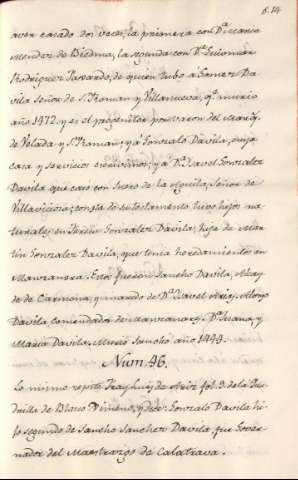 6.14
aver casado dos veces, la primera con D.ª Maria
Mendez de Biedma, la segunda con D.ª Guiomar
Rodriguez Tavardo, de quien tubo a Gomez Da-
vila Señor de S.ⁿ Roman y Villanueva, q.ᵉ murio
año 1472. y es el progenitor por varon del Marq.ˢ
de Velada, y S.ⁿ Roman, y a Gonzalo Davila, cuya
casa y servicios escrivimos; y a D.ª Ysavel Gonzalez
Davila que caso con Suero de la Aguila, Señor de
Villaviciosa; consta de su testamento tuvo hijos na-
turales, en Gonzalez Davila, hija de Mar-
tin Gonzalez Davila, que tenia heredamientos en
Manzanera. Estos fueron Sancho Davila, Alcay-
de de Carmona, y marido de D.ª Ysavel Alonso
Davila comendador de D.ª Juana, y
Maria Davila. Murio Sancho año 1444.
Num. 46.
Lo mismo repite Fray Luis de Ariz fol. 3. de la Qua-
drilla de Blasco Ximeno, y dice: Gonzalo Davila hi-
jo segundo de Sancho Sanchez Davila, fue Gover-
nador del Maestrazgo de Calatrava.